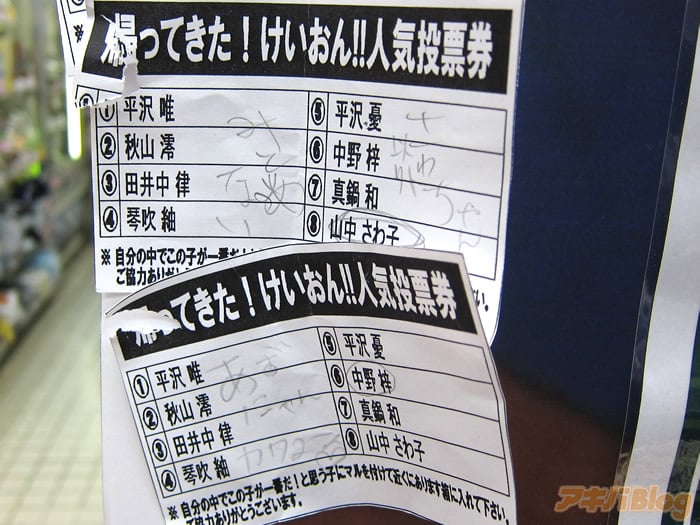 帰ってきた!けいおん!!人気投票券
① 平沢 唯
⑤ 平沢 憂
② 秋山 澪
⑥ 中野 梓
③ 田井中 律
⑦ 真鍋 和
④ 琴吹 紬
⑧ 山中 さわ子
さわちゃん
※ 自分の中でこの子が一番だ!
ご協力ありがとう
ってきた!けいおん!!人気投票券
① 平沢 唯
⑤ 平沢 憂
② 秋山 澪
⑥ 中野 梓
③ 田井中 律
⑦ 真鍋 和
④ 琴吹 紬
⑧ 山中 さわ子
あずにゃん
※ 自分の中でこの子が一番だ!と思う子にマルを付けて近くにあります箱に入れて下さい。
ご協力ありがとうございます。
アキバBlog